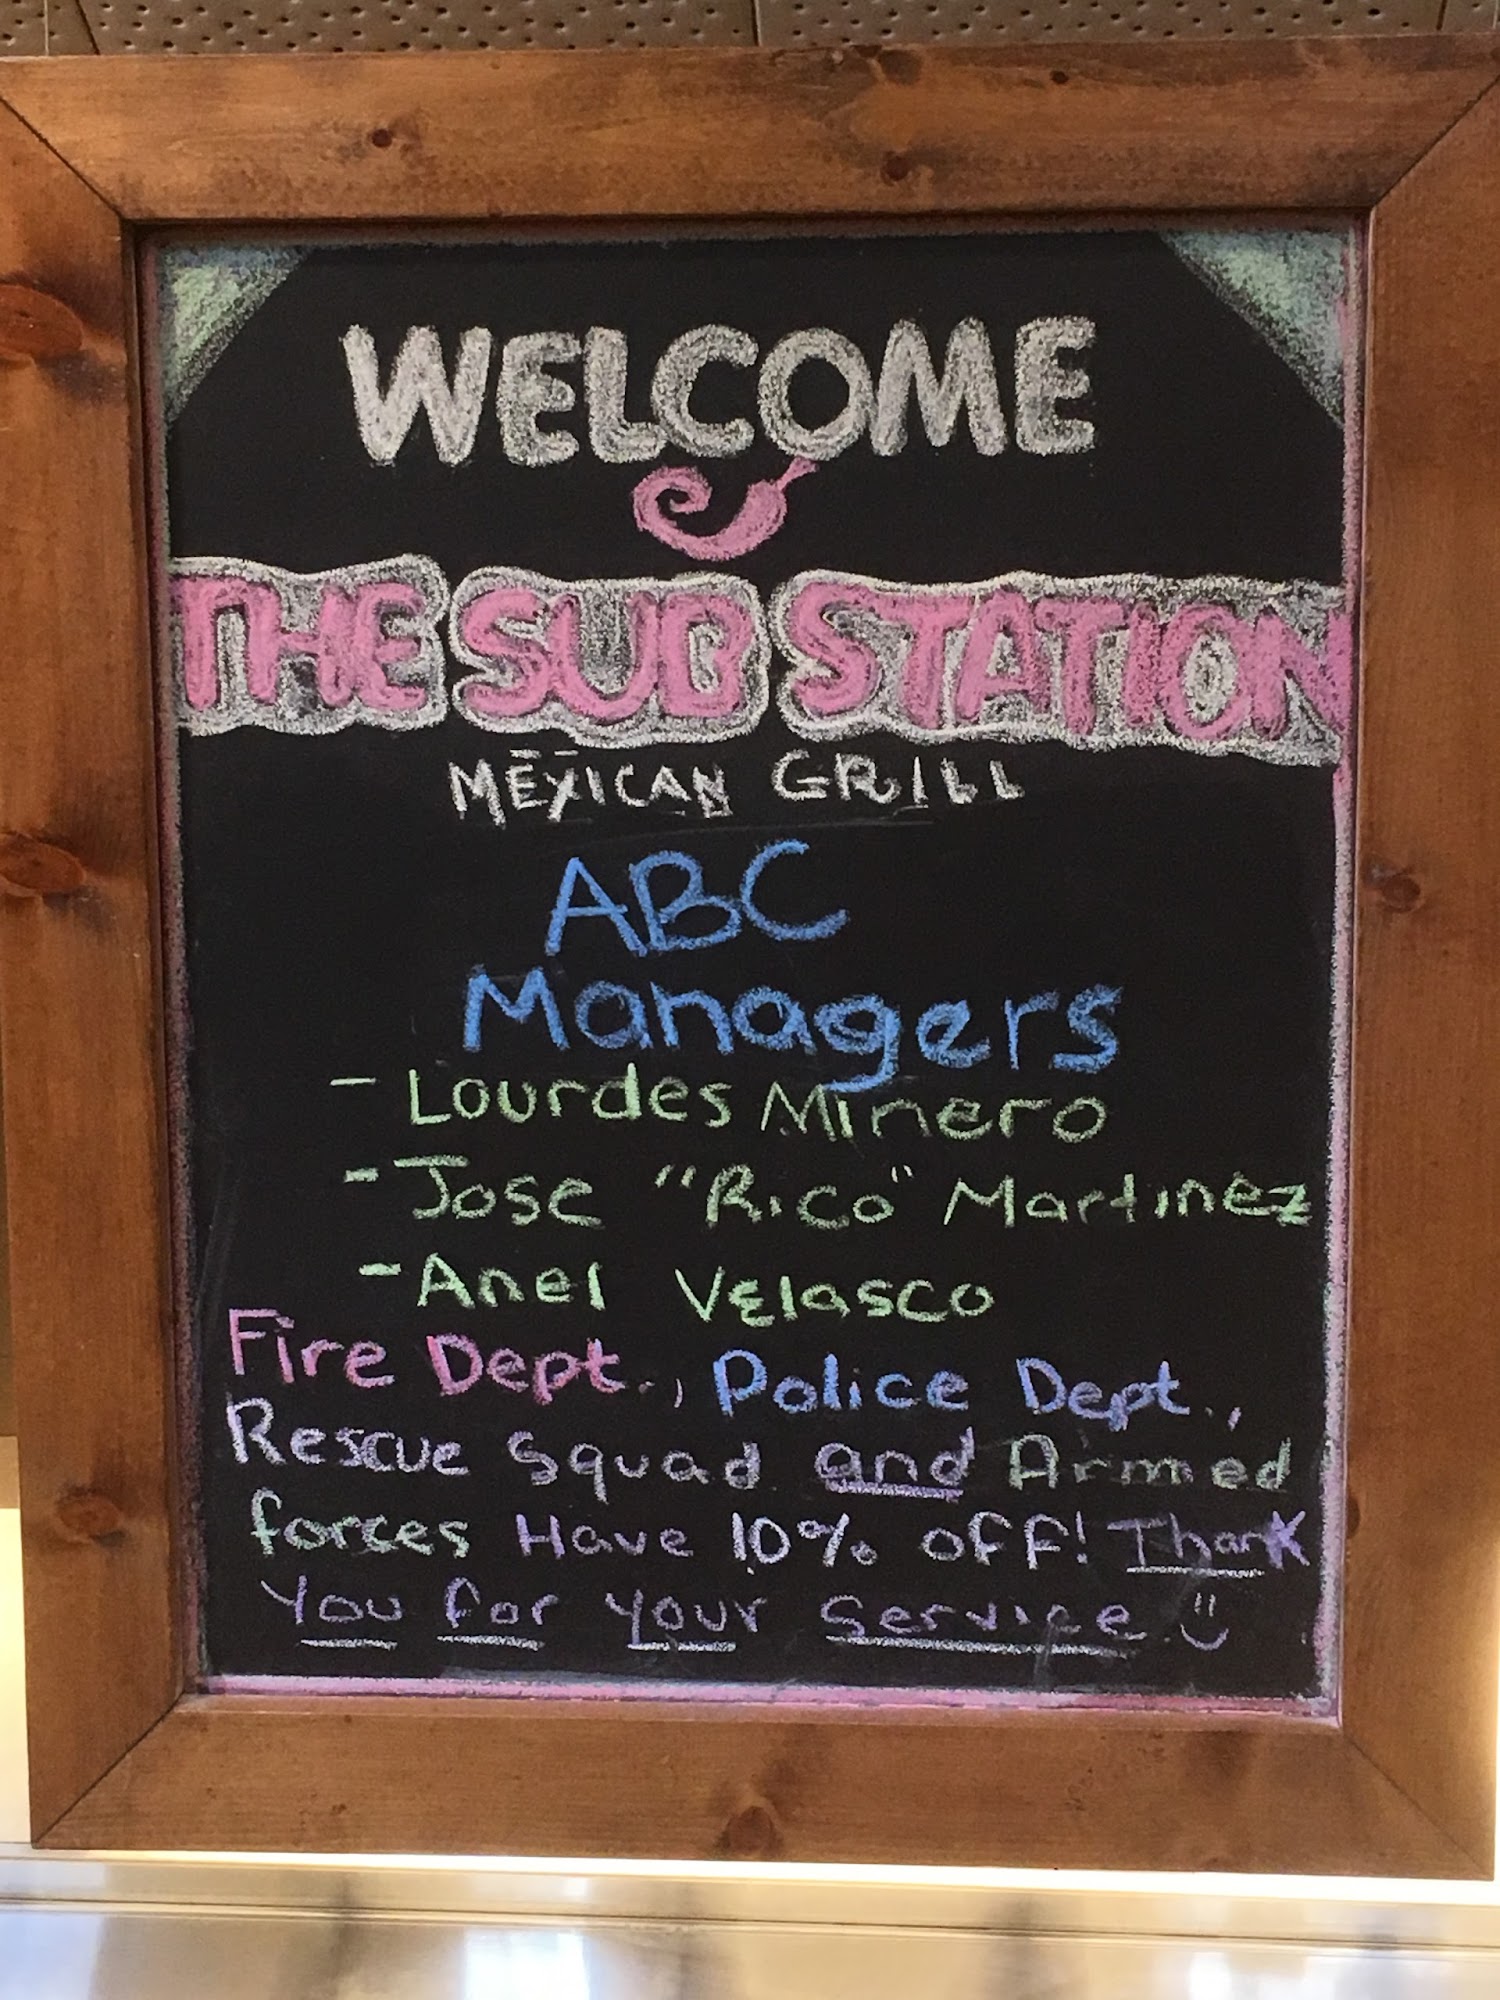 WELCOME
THE SUB STATION
MEXICAN GRILL
ABC
Managers
- Lourdes Minero
- Jose "Rico" Martinez
- Anel Velasco
Fire Dept., Police Dept.,
Rescue Squad and Armed
forces Have 10% off! Thank
You for your service.